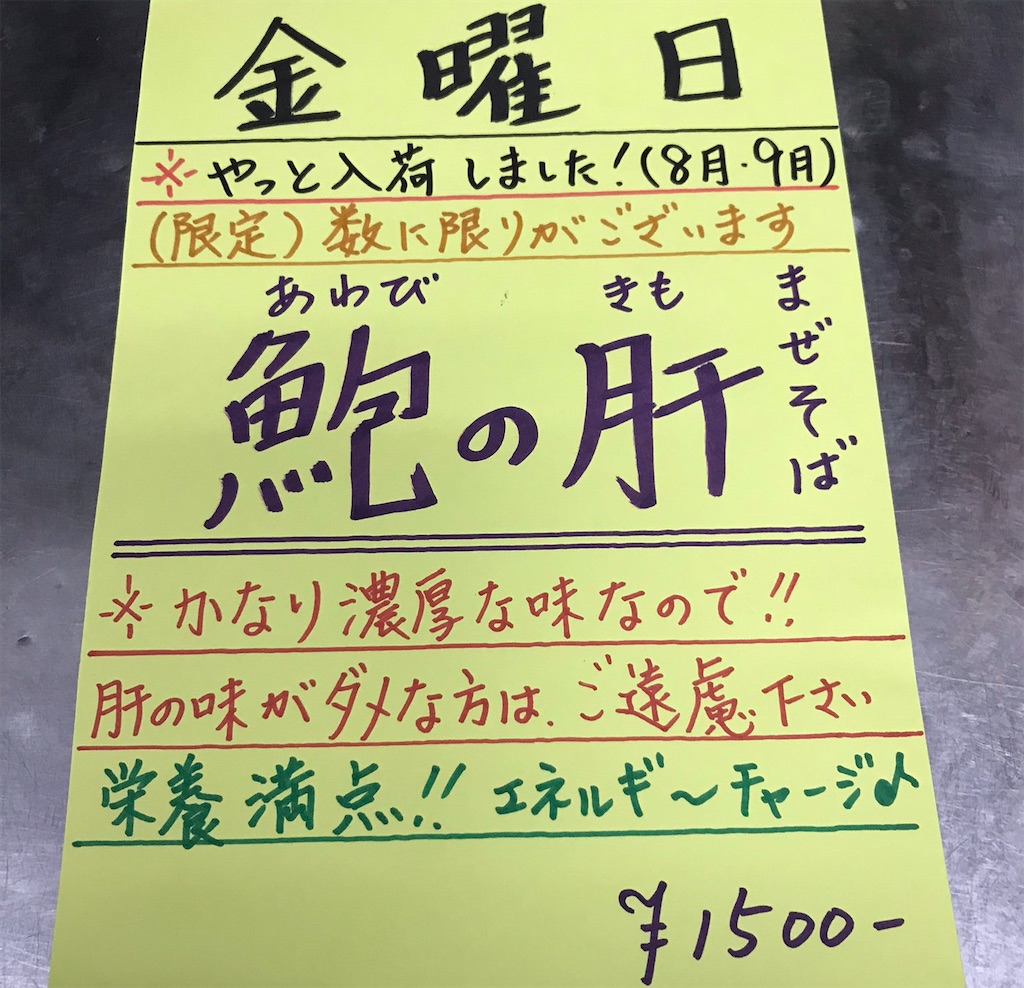 金曜日
※やっと入荷しました!(8月・9月)
(限定)数に限りがございます
あわび きも
鮑の肝
まぜそば
※かなり濃厚な味なので!!
肝の味がダメな方は、ご遠慮下さい
栄養満点!!エネルギ〜チャージ♪
¥1500-